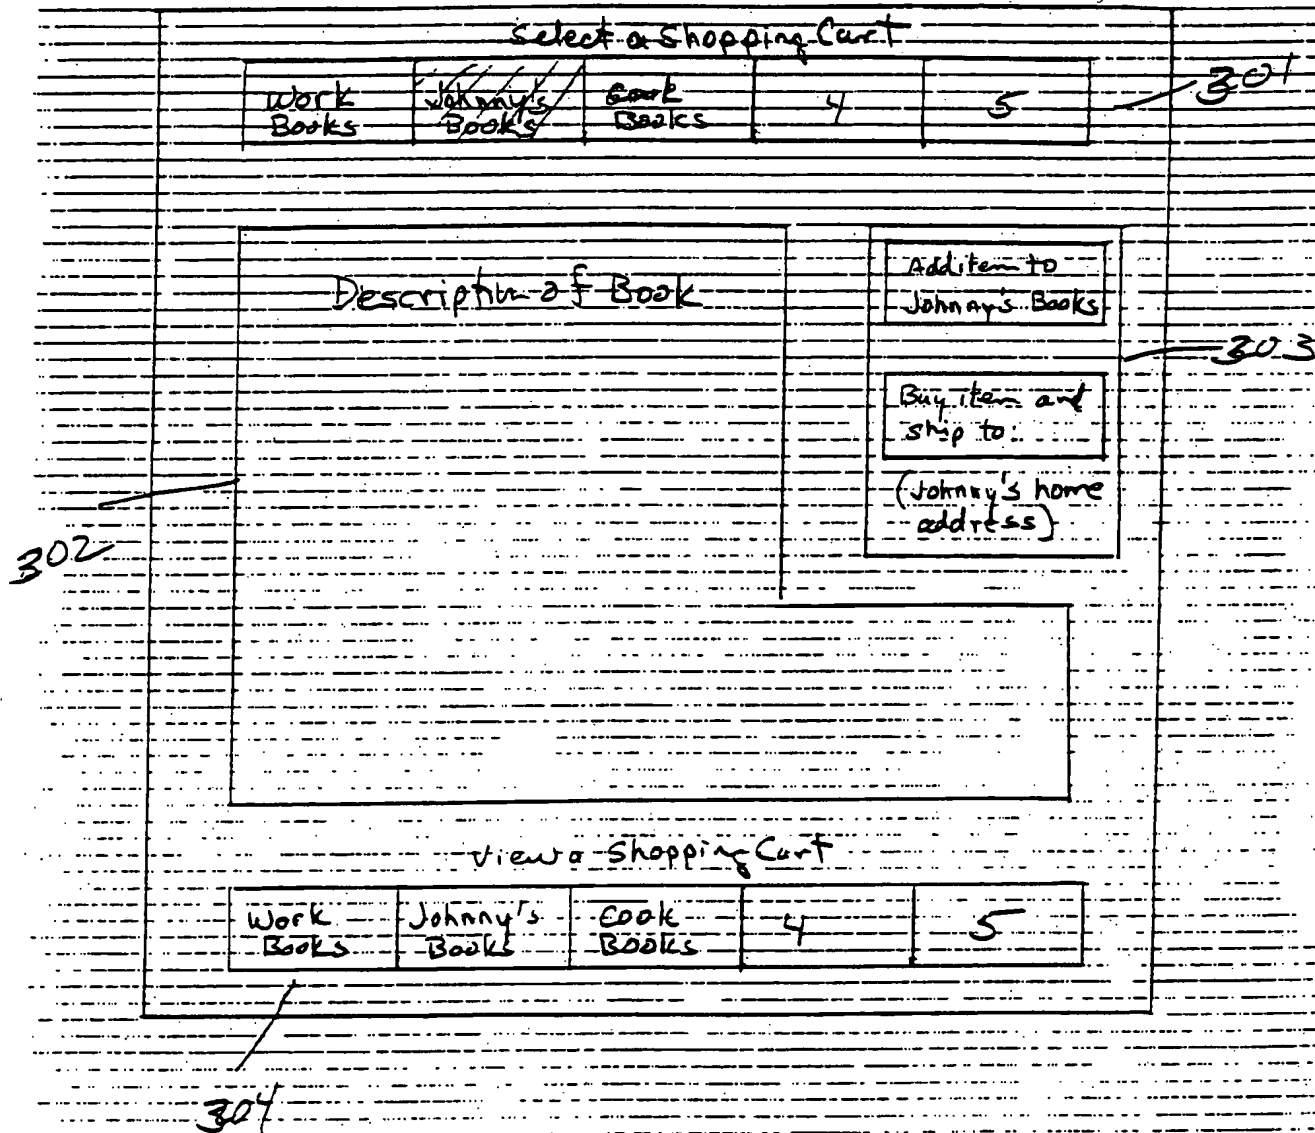 Select a Shopping Cart
Work Books
Johnny's Books
Cook Books
4
5
301
Description of Book
Add item to
Johnny's Books
303
Buy item and
ship to:
(Johnny's home
address)
302
View a Shopping Cart
Work Books
Johnny's Books
Cook Books
4
5
304